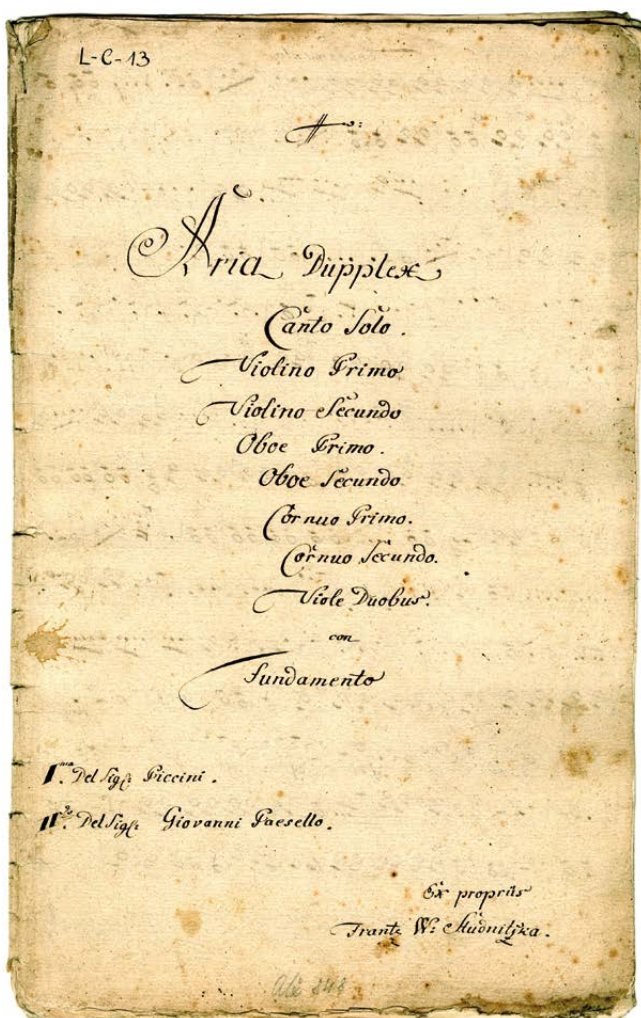 L-C-13
Aria Dupplex
Canto Solo.
Violino Primo
Violino Secundo
Oboe Primo.
Oboe Secundo
Cornuo Primo.
Cornuo Secundo.
Viole Duobus.
con
Fundamento
I.ma Del Sigr: Piccini.
II.da Del Sigr: Giovanni Paesello.
Ex propriis
Frantz W: Studnitzka.